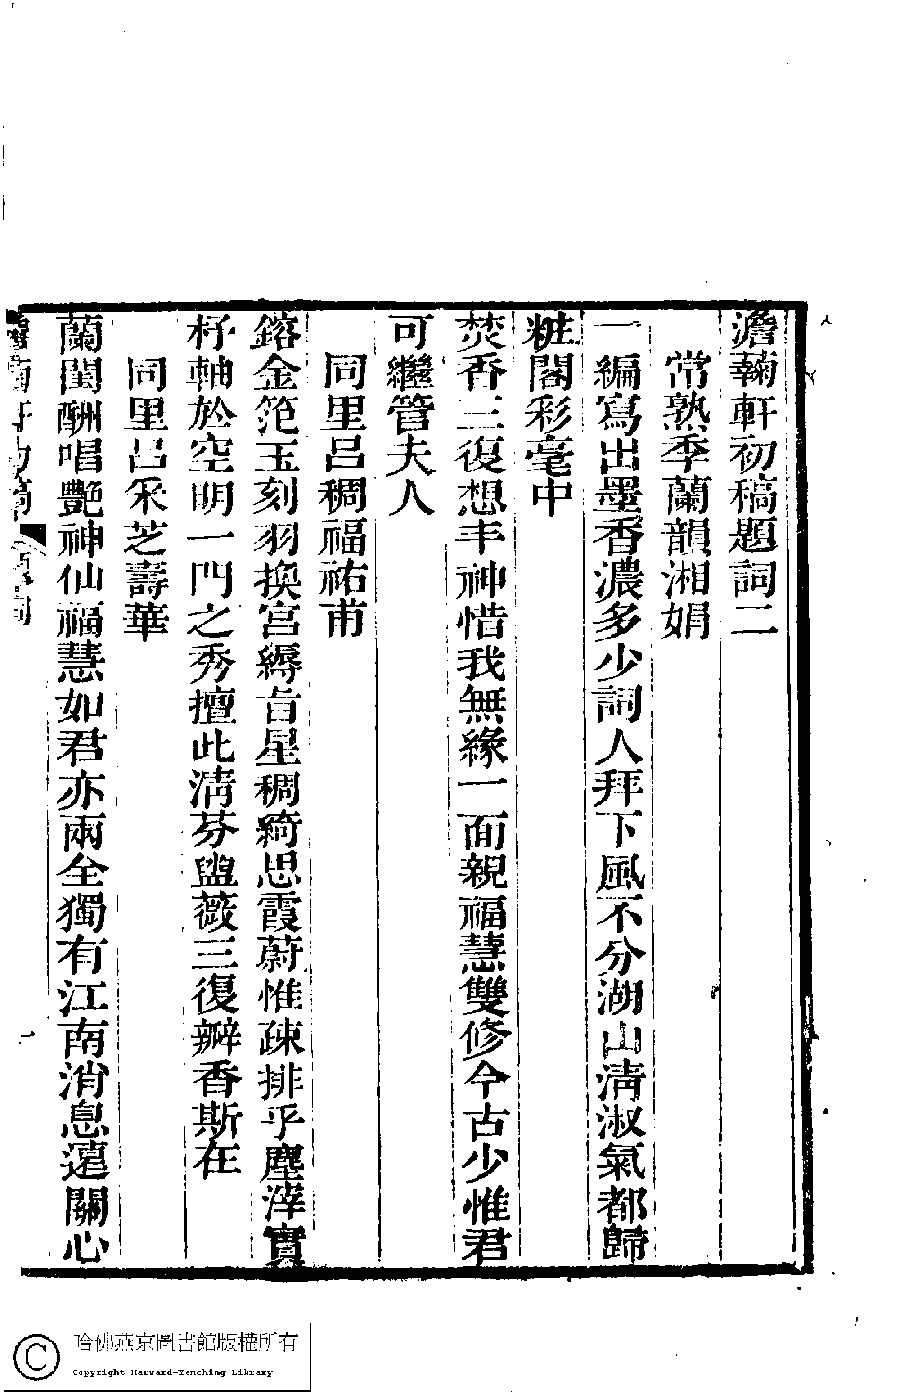 澹蘜軒初稿題詞二
常熟季蘭韻湘娟
一編寫出墨香濃多少詞人拜下風不分湖山清淑氣都歸
粧閣彩毫中
焚香三復想丰神惜我無緣一面親福慧雙修今古少惟君
可繼管夫人
同里呂稠福祐甫
鎔金范玉刻羽換宮縟旨星稠綺思霞蔚惟疎排乎塵滓實
杼軸於空明一門之秀擅此清芬盥薇三復瓣香斯在
同里呂采芝壽華
蘭閨酬唱豔神仙福慧如君亦兩全獨有江南消息遠關心
哈佛燕京圖書館版權所有
Copyright Harvard-Yenching Library